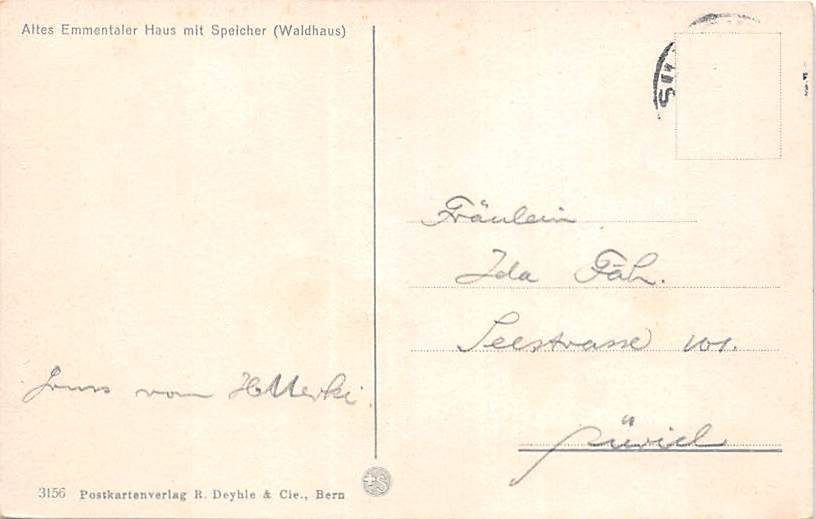 Altes Emmentaler Haus mit Speicher (Waldhaus)
Fräulein
Ida Fäh.
Seestrasse 101.
Zürich
Gruss vom
3156 Postkartenverlag R. Deyhle & Cie., Bern